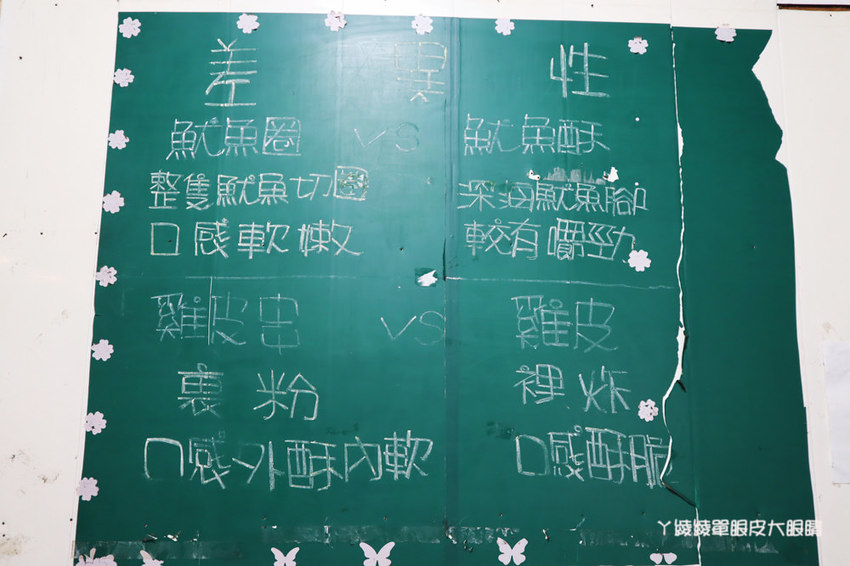 差異性
魷魚圈 vs 魷魚酥
整隻魷魚切圈 深海魷魚腳
口感軟嫩 較有嚼勁
雞皮串 vs 雞皮
裹粉 裸炸
口感外酥內軟 口感酥脆
ㄚ綾綾單眼皮大眼睛